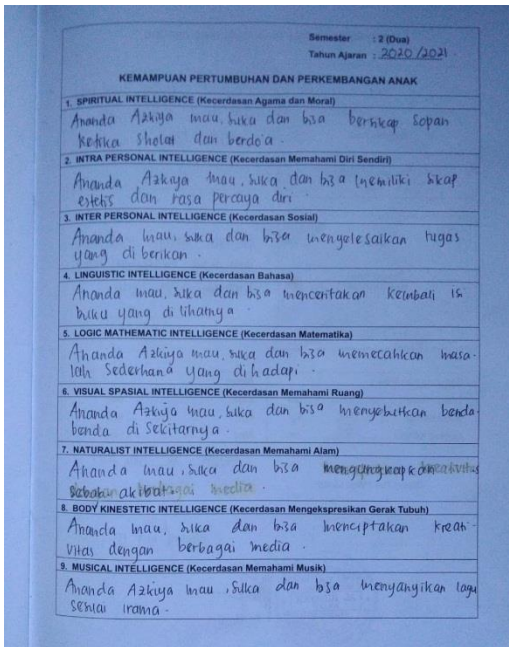 Semester : 2 (Dua)
Tahun Ajaran : 2020/2021.
KEMAMPUAN PERTUMBUHAN DAN PERKEMBANGAN ANAK
1. SPIRITUAL INTELLIGENCE (Kecerdasan Agama dan Moral)
Ananda Azkiya mau, suka dan bisa bersikap sopan
ketika sholat dan berdo'a.
2. INTRA PERSONAL INTELLIGENCE (Kecerdasan Memahami Diri Sendiri)
Ananda Azkiya mau, suka dan bisa memiliki sikap
estetis dan rasa percaya diri.
3. INTER PERSONAL INTELLIGENCE (Kecerdasan Sosial)
Ananda mau, suka dan bisa menyelesaikan tugas
yang di berikan.
4. LINGUISTIC INTELLIGENCE (Kecerdasan Bahasa)
Ananda mau, suka dan bisa menceritakan kembali isi
buku yang di lihatnya
5. LOGIC MATHEMATIC INTELLIGENCE (Kecerdasan Matematika)
Ananda Azkiya mau, suka dan bisa memecahkan masa-
lah Sederhana yang di hadapi.
6. VISUAL SPASIAL INTELLIGENCE (Kecerdasan Memahami Ruang)
Ananda Azkiya mau, suka dan bisa menyebutkan benda-
benda di Sekitarnya.
7. NATURALIST INTELLIGENCE (Kecerdasan Memahami Alam)
Ananda mau, suka dan bisa mengungkapkan
sebab akibat media.
8. BODY KINESTETIC INTELLIGENCE (Kecerdasan Mengekspresikan Gerak Tubuh)
Ananda mau, suka dan bisa menciptakan kreati-
vitas dengan berbagai media.
9. MUSICAL INTELLIGENCE (Kecerdasan Memahami Musik)
Ananda Azkiya mau, suka dan bisa menyanyikan lagu
sesuai irama.